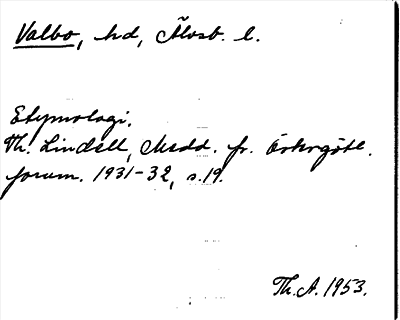 Valbo, hd, Älvsb. l.
Etymologi.
Th. Lindell, Medd. fr. Östergötl.
fornm. 1931-32, s.19.
Th.A. 1953.